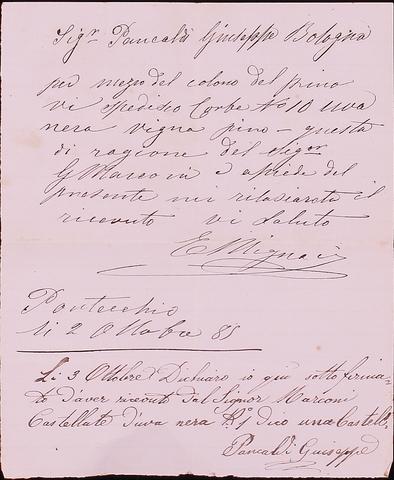 Sigr Pancaldi Giuseppe Bologna
per mezo del colono del pino
vi spedisco Corbe No 10 uva
nera vigna pino - questa
di ragione del Sigor
G Marconi e apiede del
presente mi rilasiarete il
ricevuto vi saluto
E Mignani
Pontecchio
li 2 Ottobre 85
Li 3 Ottobre Dichiaro io qui sotto firma-
to d'aver riceuto dal Signor Marconi
Castellate d'uva nera No 1 dico una Castell.
Pancaldi Guiseppe